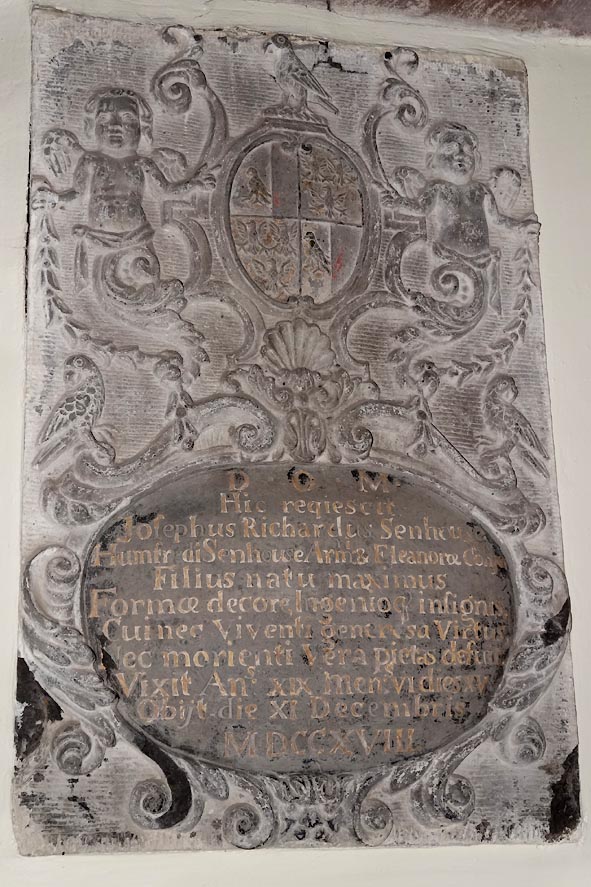 D O M
Hic reqiescit
Josephus Richardus Senhouse
Humfr: di Senhouse Arm: & Eleanoræ Conju
Filius natu maximus
Formæ decore Ingenioq insignis
Cui nec Viventi generosa Virtus
Nec morienti Vera pietas defuit
Vixit An: XIX Men: VI dies XV
Obijt die XI Decembris
MDCCXVIII